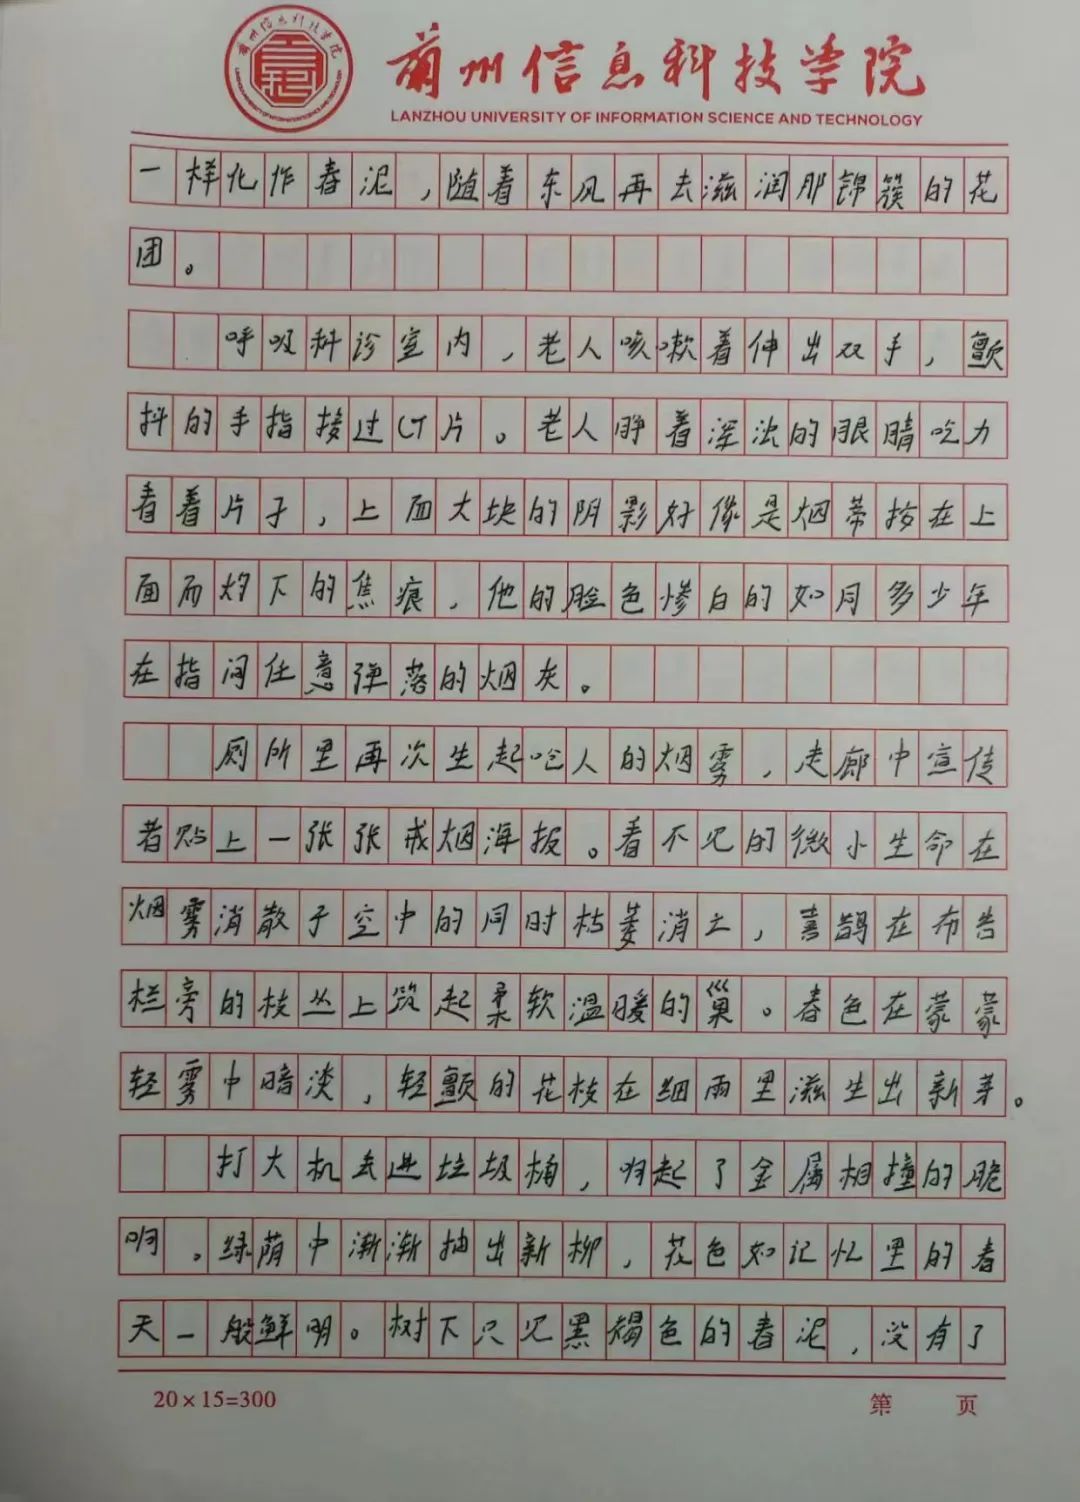 兰州信息科技学院
LANZHOU UNIVERSITY OF INFORMATION SCIENCE AND TECHNOLOGY
一样化作春泥，随着东风再去滋润那锦簇的花
团。
呼吸科诊室内，老人咳嗽着伸出双手，颤
抖的手指接过CT片。老人睁着深沈的眼睛吃力
看着片子，上面大块的阴影好像是烟蒂按在上
面而灼下的焦痕，他的脸色惨白的如同多少年
在指间任意弹落的烟灰。
厕所里再次生起呛人的烟雾，走廊中宣传
者贴上一张张戒烟海报。看不见的微小生命在
烟雾消散于空中的同时枯萎消亡，喜鹊在布告
栏旁的枝丛上筑起柔软温暖的巢。春色在蒙蒙
轻雾中暗淡，轻颤的花枝在细雨里滋生出新芽。
打火机丢进垃圾桶，响起了金属相撞的脆
响。绿荫中渐渐抽出新柳，花色如记忆里的春
天一般鲜明。树下只见黑褐色的春泥，没有了
20×15=300
第 页